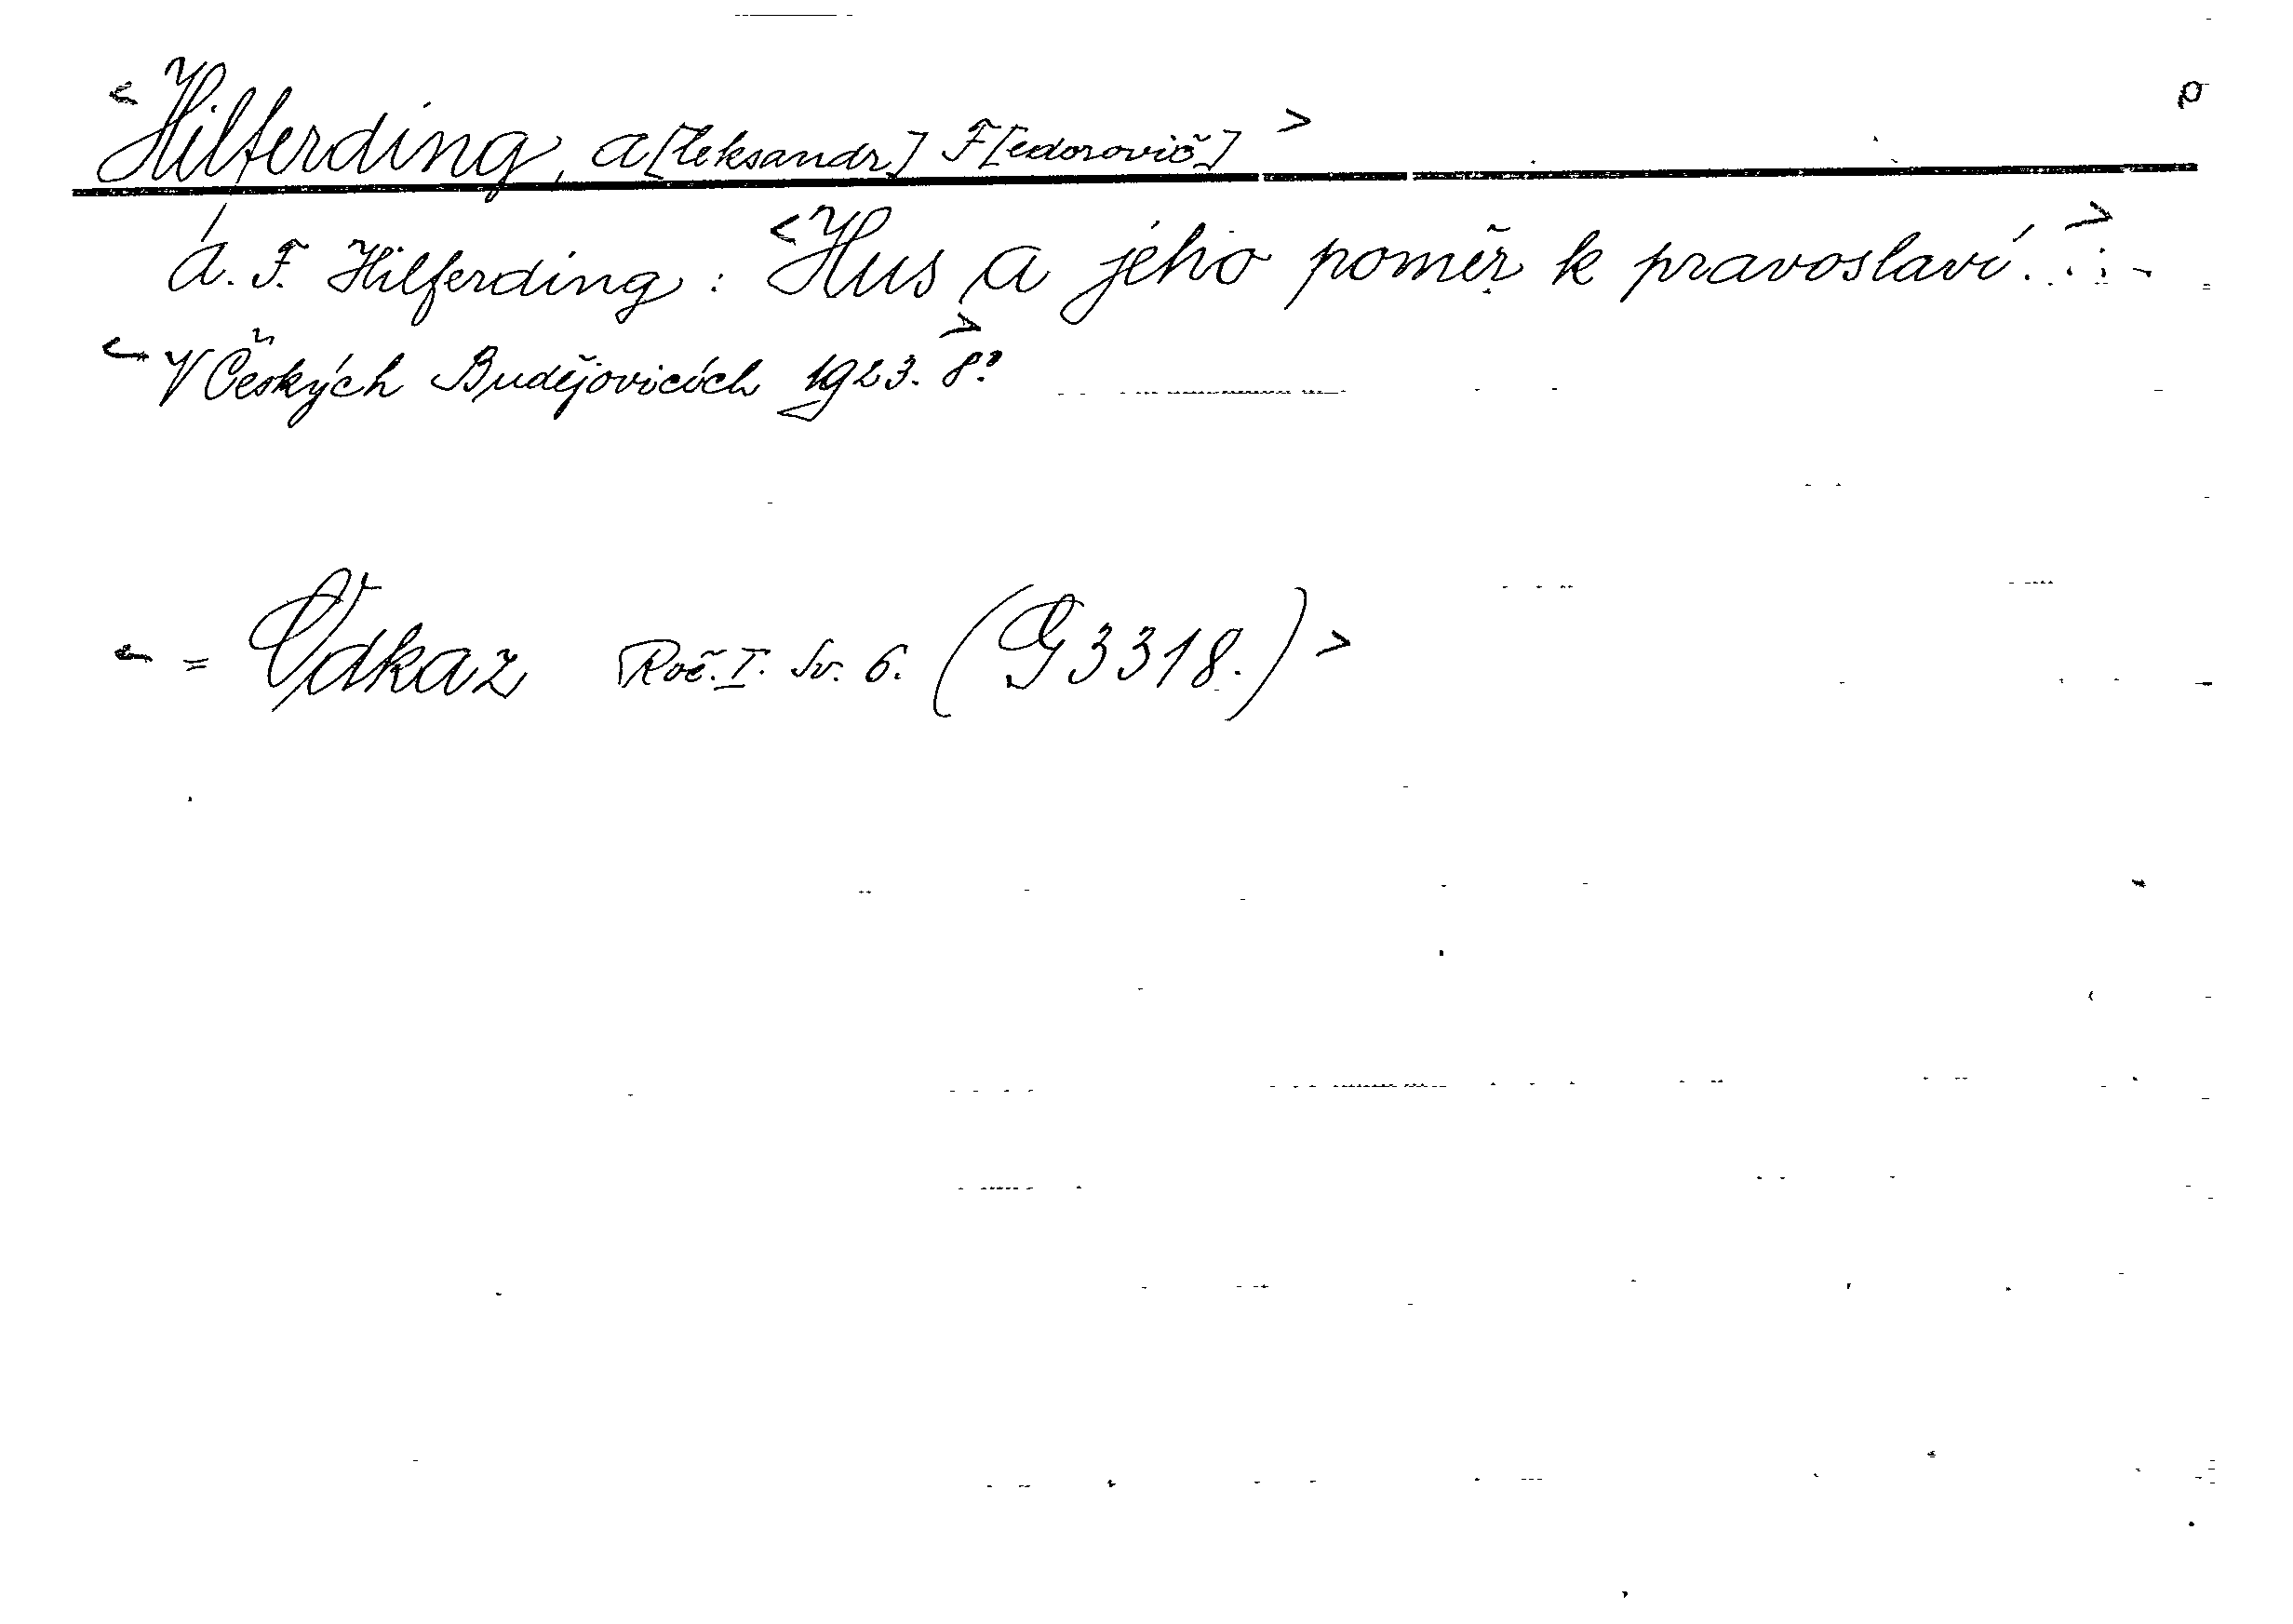 <Hilferding, A[leksandr] F[edorovič]> p
A. F. Hilferding: <Hus a jeho poměr k pravoslaví.>...-
<V Českých Budějovicích 1923. 8°.>
<= Odkaz Roč. I. Sv. 6. (G 3318.)>